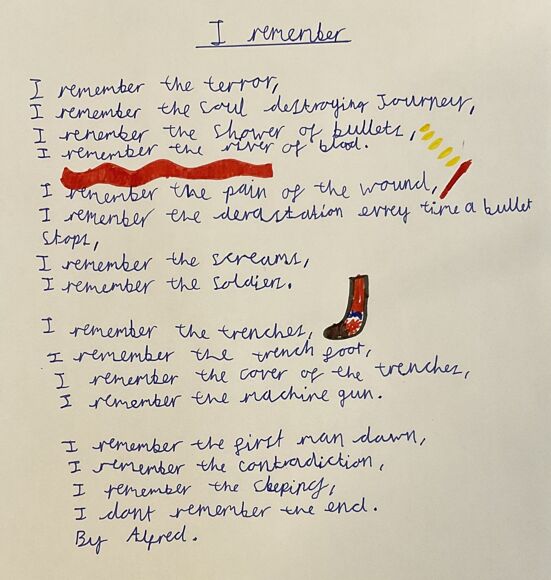 I remember
I remember the terror,
I remember the soul destroying Journey,
I remember the shower of bullets,
I remember the river of blood.
I remember the pain of the wound,
I remember the devastation every time a bullet
stops,
I remember the screams,
I remember the soldiers.
I remember the trenches,
I remember the trench foot,
I remember the cover of the trenches,
I remember the machine gun.
I remember the first man down,
I remember the contradiction,
I remember the
I dont remember the end.
By Alfred.